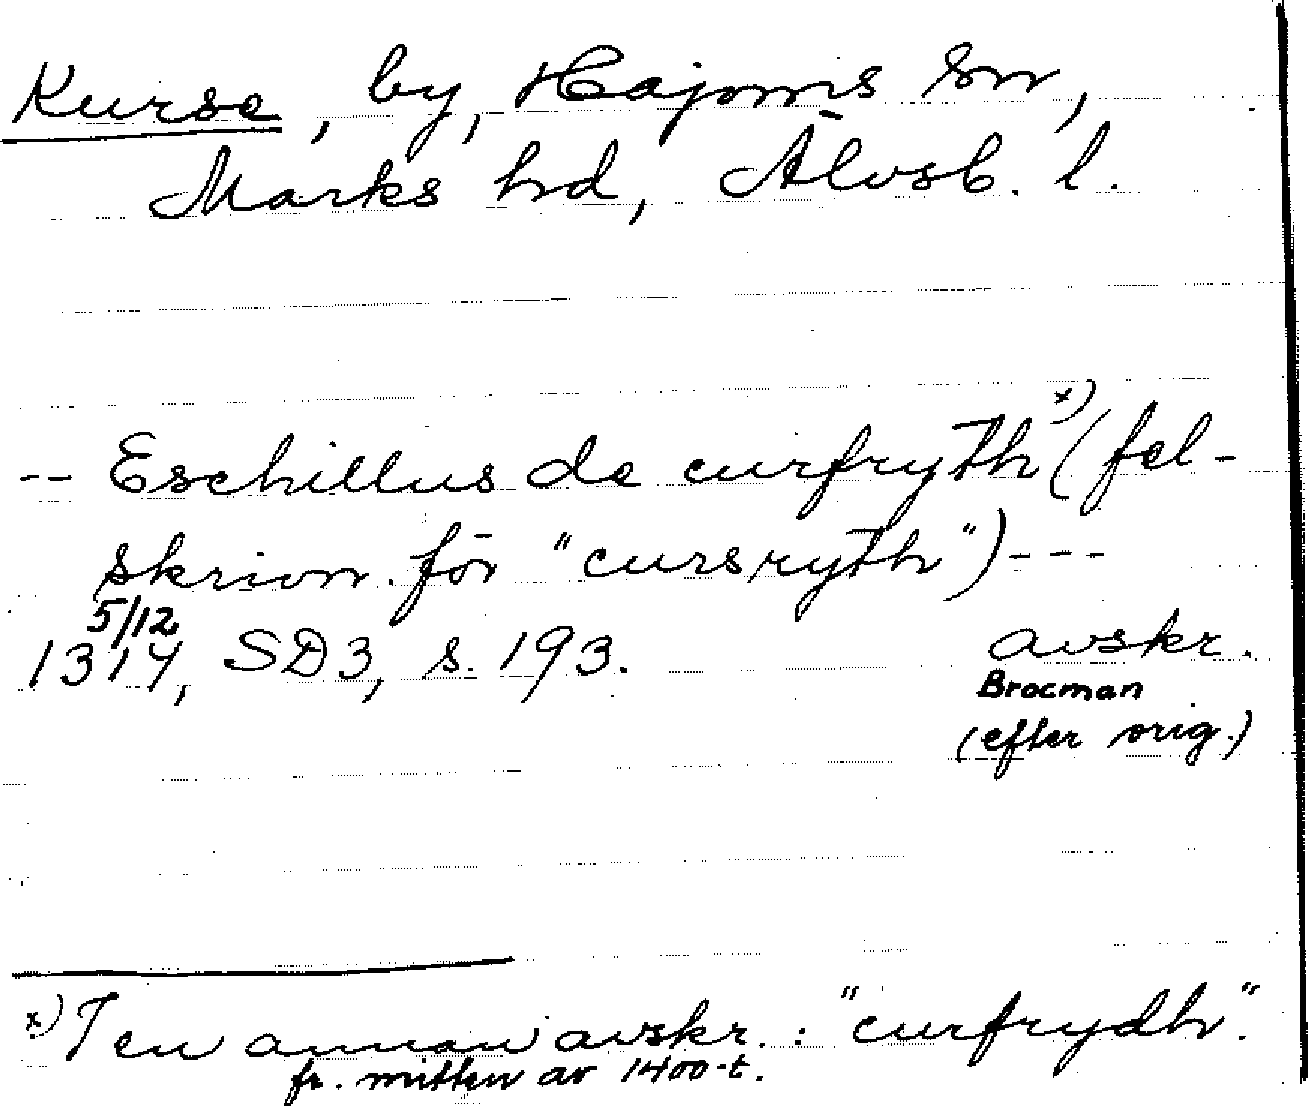 Kurse, by, Hajoms sn,
Marks hd, Älvsb. l.
-- Eschillus de curfryth x) (fel-
skrivn. för "cursryth") ---
5/12
1314, SD3, s. 193. avskr.
Brocman
(efter orig.)
x) I en annan avskr. : "curfrydh".
fr. mitten av 1400-t.